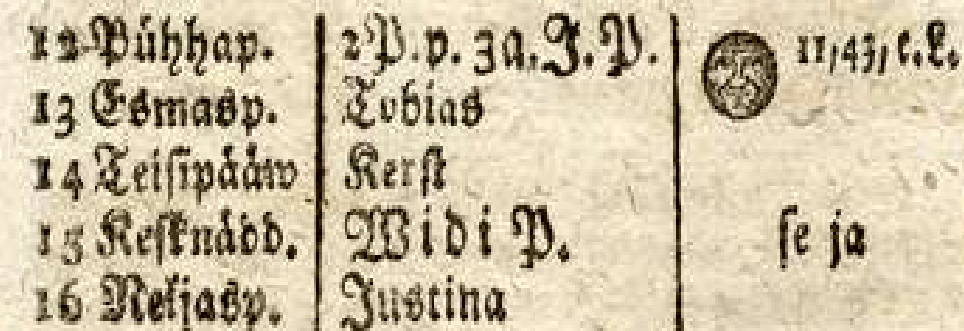 12 Pühhap. 2 P. p. 3a. J. P. 11, 43, e. L.
13 Esmasp. Tobias
14 Teisipääw Kerst
15 Kesknädd. Widi P. se ja
16 Neljasp. Justina